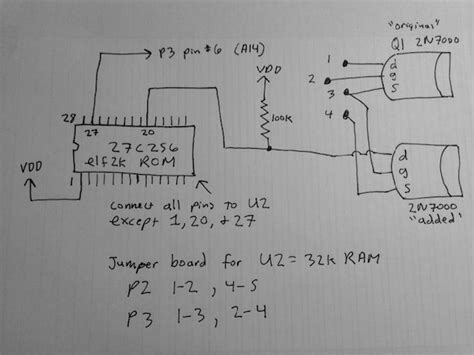 "original"
Q1 2N7000
P3 pin #6 (A14)
VDD
1
2
3
4
d
g
s
100k
28
27
20
27C256
elf2k ROM
VDD
1
d
g
s
2N7000
"added"
connect all pins to U2
except 1, 20, & 27
Jumper board for U2 = 32k RAM
P2 1-2, 4-5
P3 1-3, 2-4